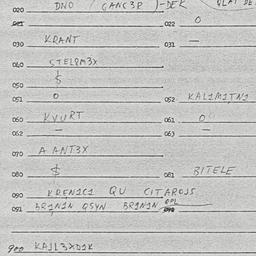 020 DNO / GANC3R )-DEK
022 O
030 KRANT 031 —
060 STELPM3X
$
050
051 O 052 KALIM1TN1
050 KVURT 061 O
062 — 063 —
070 A ANT3X
080 $ 081 BITELE
090 KRENICI QU CITAROJS
091 BR1N1N QSYN BR1N1N
900 KAJL3XD1K